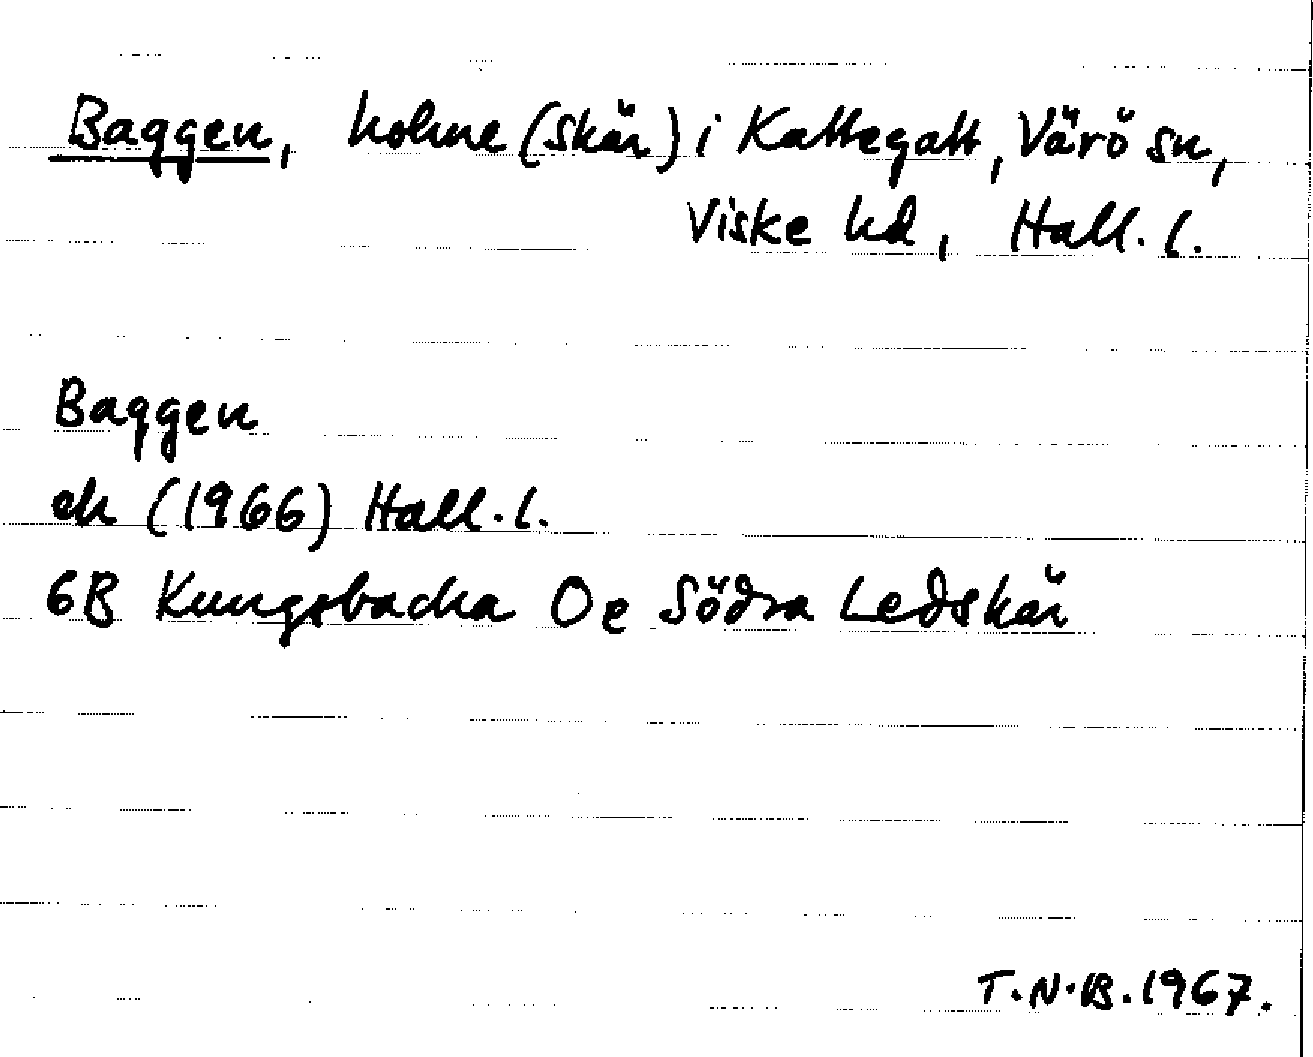 Baggen, holme (skär) i Kattegatt, Värö sn,
Viske hd, Hall. l.
Baggen
ek (1966) Hall. l.
6B Kungsbacka 0e Södra Ledskär
T.N.B. 1967.